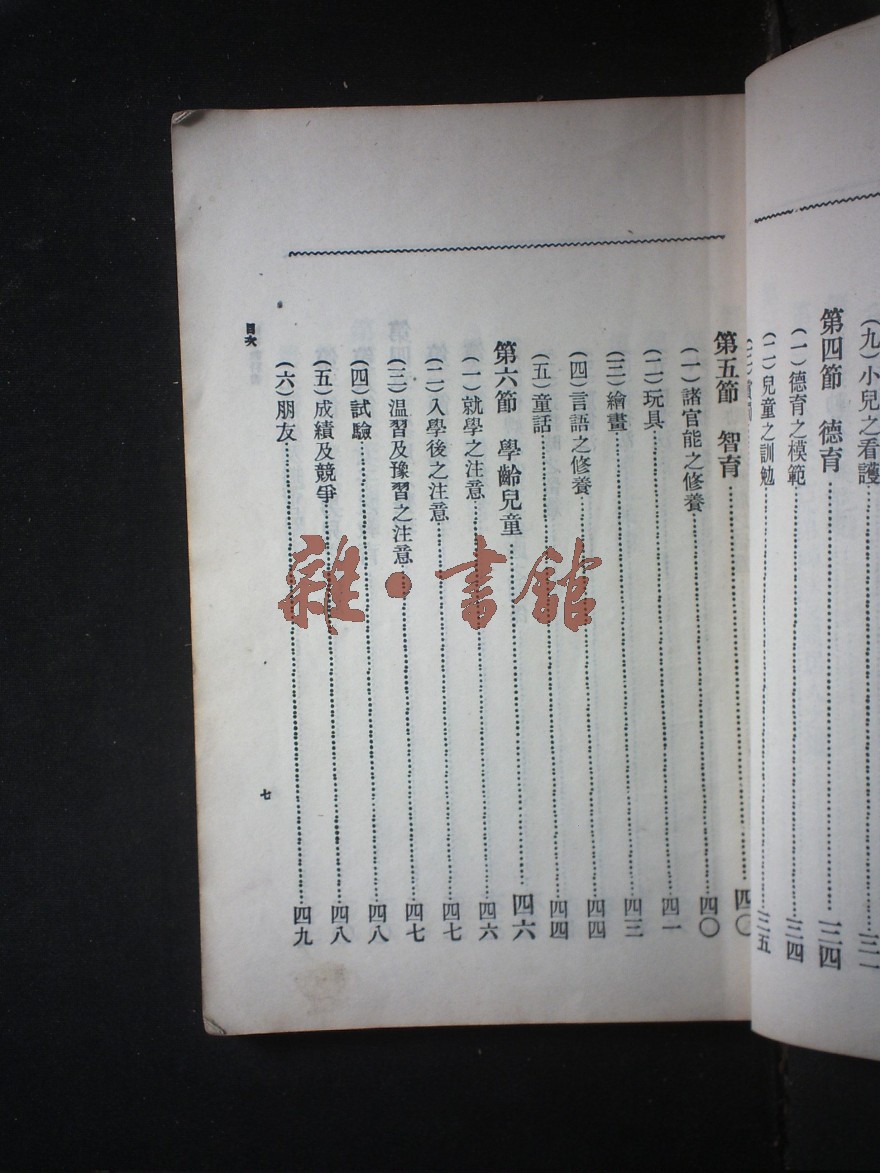 (九)小兒之看護……三一
第四節　德育……三四
(一)德育之模範……三四
(二)兒童之訓勉……三五
第五節　智育……四〇
(一)諸官能之修養……四〇
(二)玩具……四一
(三)繪畫……四三
(四)言語之修養……四四
(五)童話……四四
第六節　學齡兒童……四六
(一)就學之注意……四六
(二)入學後之注意……四七
(三)温習及豫習之注意……四七
(四)試驗……四八
(五)成績及競爭……四八
(六)朋友……四九
目次
七
雜·書館